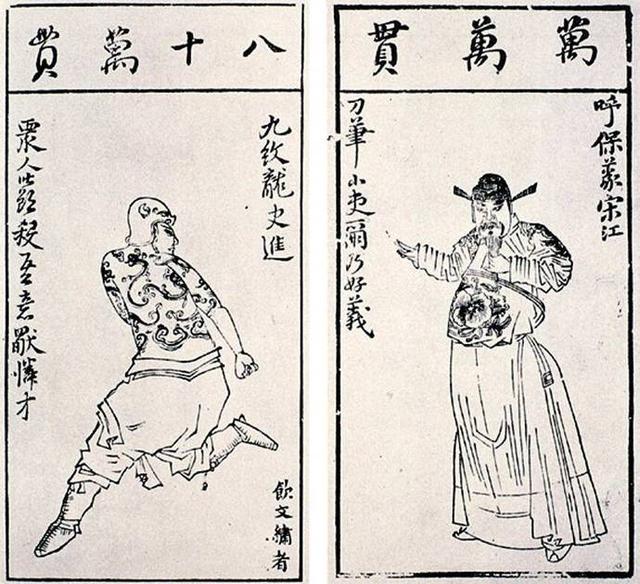 萬萬貫
呼保義宋江
刀筆小吏爾乃好義
八十萬貫
九紋龍史進
眾人皆欲殺吾意獨憐才
飲文繡者